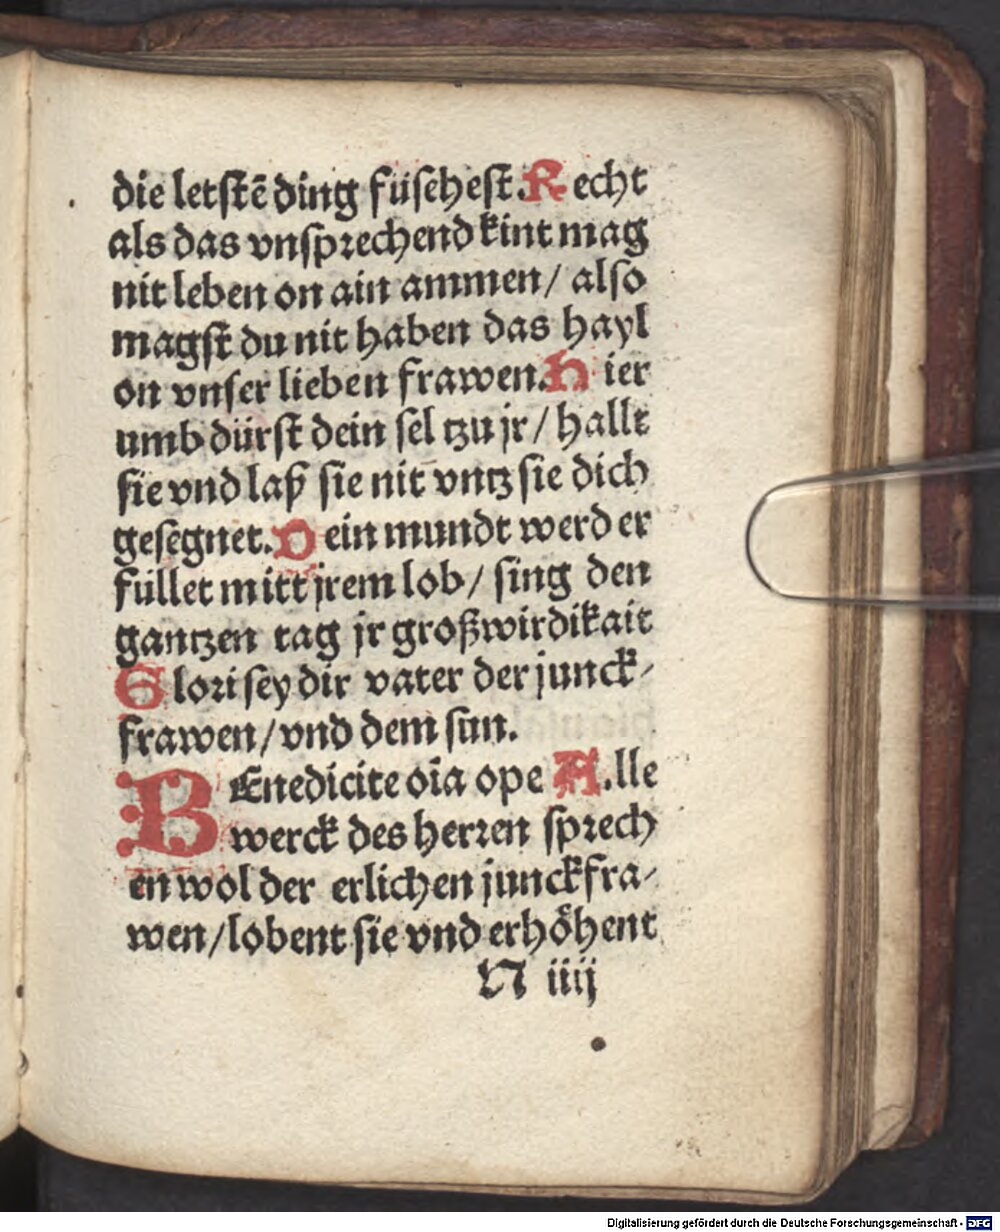 die letstẽ ding fürsehest. Recht
als das vnsprechend kint mag
nit leben on ain ammen/ also
magst du nit haben das hayl
on vnser lieben frawen. Hier
umb dürst dein sel tzu jr/ hallt
sie vnd laß sie nit vntz sie dich
gesegnet. Dein mundt werd er
füllet mitt jrem lob/ sing den
gantzen tag jr großwirdikait
Glori sey dir vater der junck-
frawen/ vnd dem sun.
BEnedicite oīa ope A.lle
werck des herren sprech
en wol der erlichen junckfra-
wen/ lobent sie vnd erhöhent
N iiij
Digitalisierung gefördert durch die Deutsche Forschungsgemeinschaft - DFG